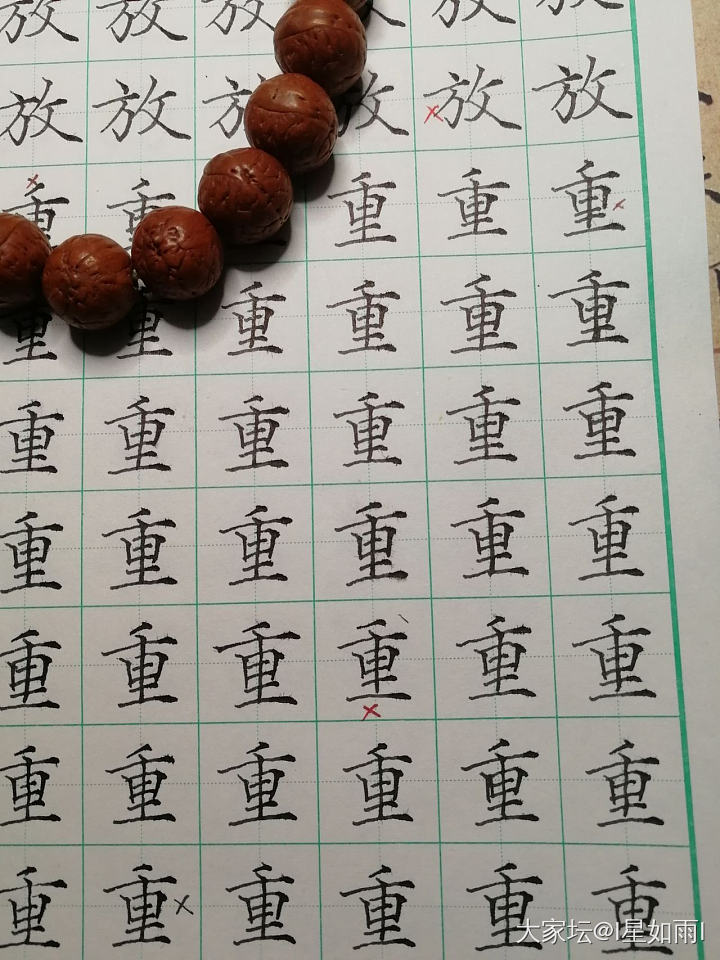 放放放放放
放放放放放放
重重重重重
重重重重重重
重重重重重重
重重重重重重
重重重重重重
重重重重重重
重重重重重重
大家坛@l星如雨l